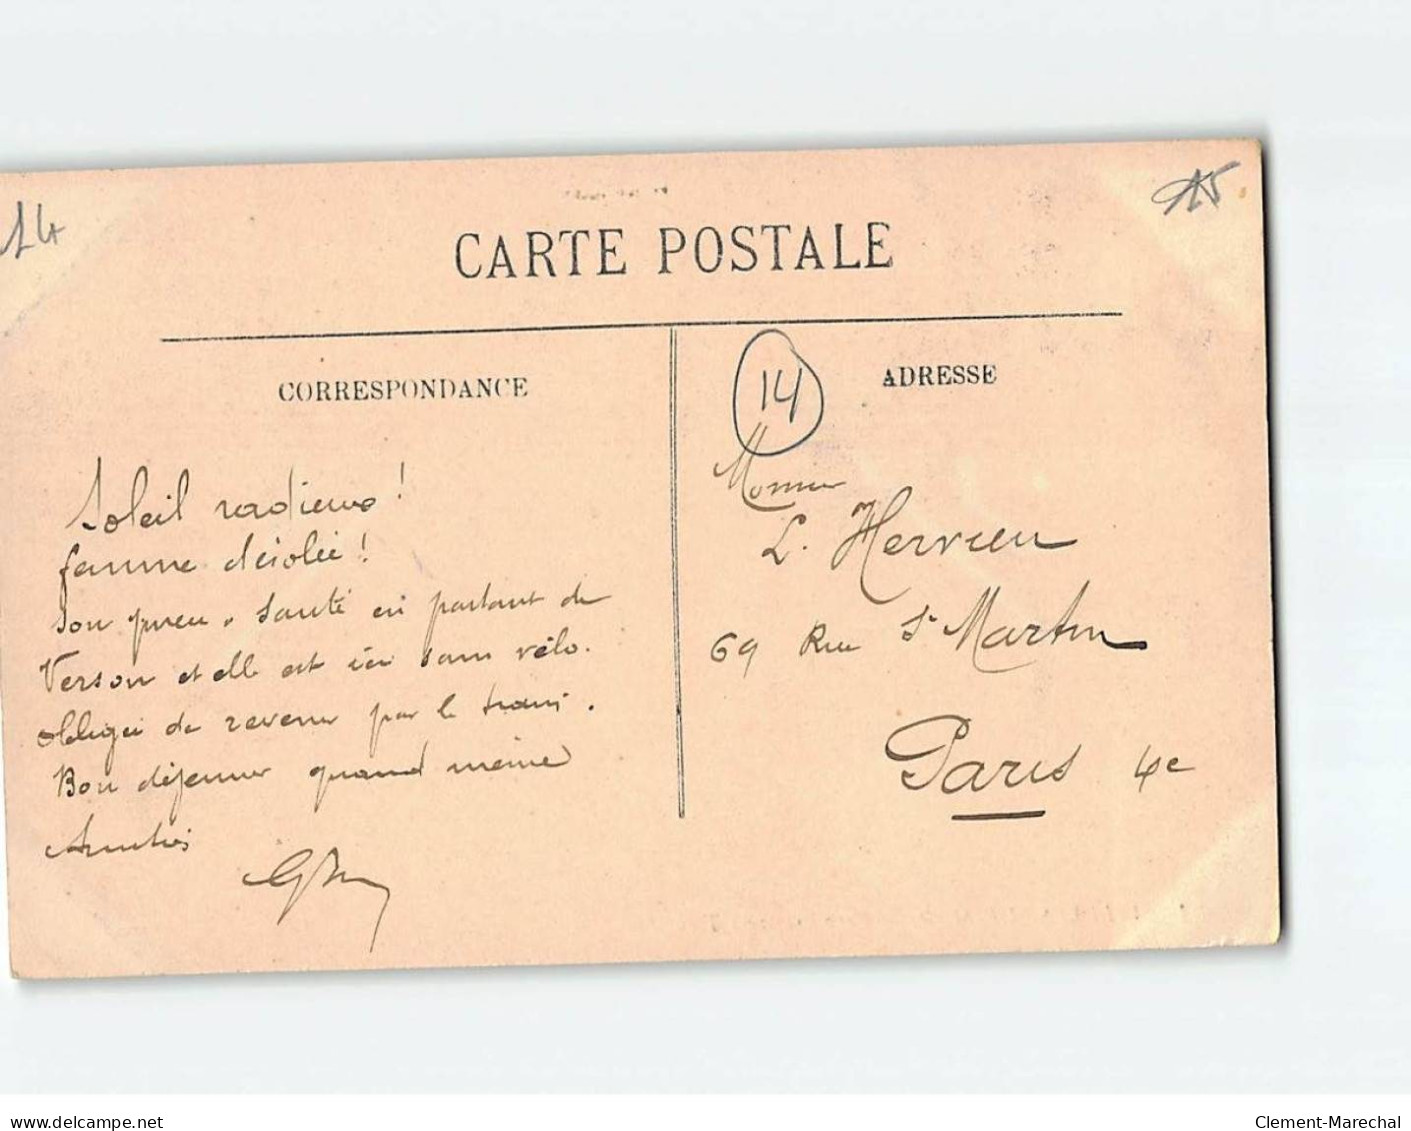 14
15
CARTE POSTALE
CORRESPONDANCE
14
ADRESSE
Soleil radieux !
femme désolée !
Son pneu a sauté en partant de
Verson et elle est ici sans vélo.
obligée de revenir par le train.
Bon déjeuner quand même
Amitiés
Monsieur
L. Hervieu
69 Rue St Martin
Paris 4e
delcampe.net
Clement-Marechal